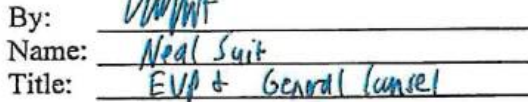 By:
Name: Neal Suit
Title: EVP & General Counsel